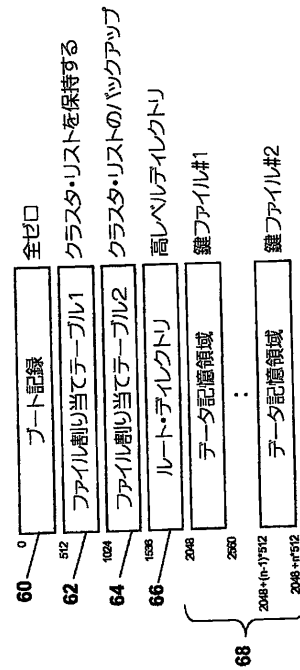 0
60
ブート記録
全ゼロ
512
62
ファイル割り当てテーブル1
クラスタ・リストを保持する
1024
64
ファイル割り当てテーブル2
クラスタ・リストのバックアップ
1536
66
ルート・ディレクトリ
高レベルディレクトリ
2048
データ記憶領域
鍵ファイル#1
2560
:
68
2048+(n-1)*512
データ記憶領域
鍵ファイル#2
2048+n*512